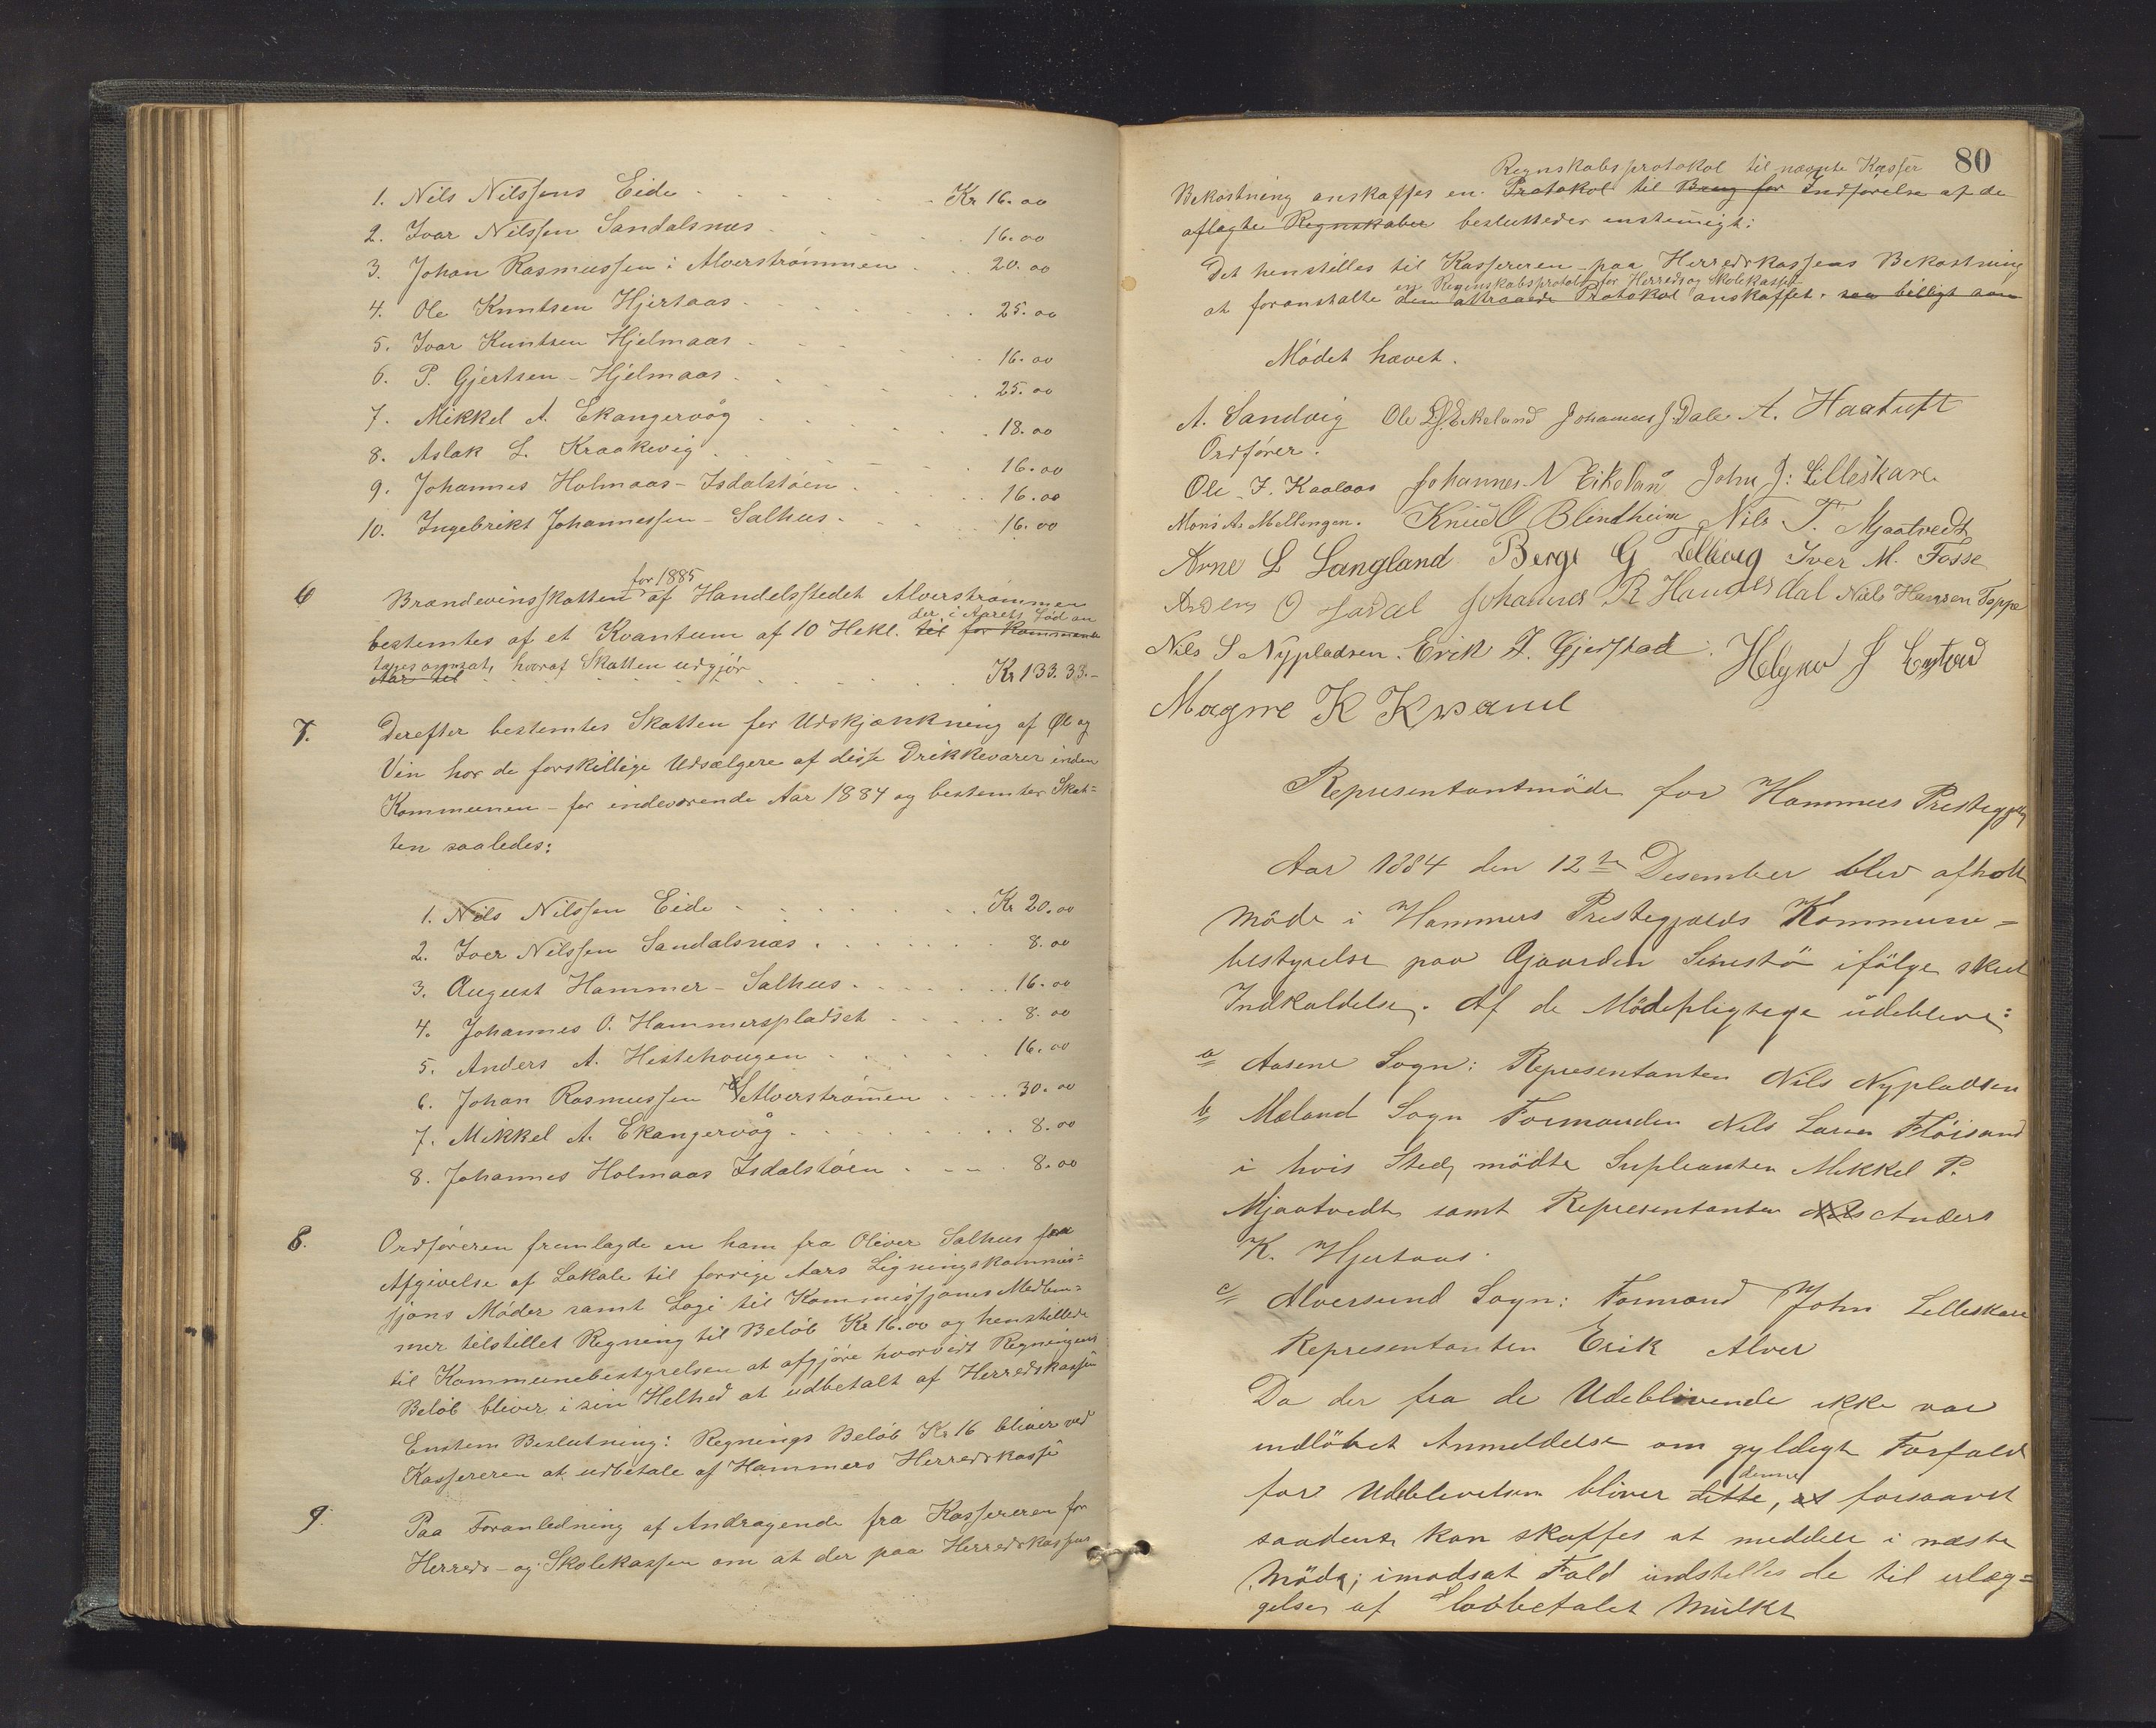 1. Nils Nilssens Eide . . . . . . Kr 16.00
2. Ivar Nilssen Sandalsnæs . . . . 16.00
3. Johan Rasmussen i Alverstrømmen . . . 20.00
4. Ole Knutsen Hjertaas . . . . . . 25.00
5. Ivar Knutsen Hjelmaas . . . . . 16.00
6. P. Gjertsen - Hjelmaas . . . . . 25.00
7. Mikkel A. Ekangervåg . . . . . 18.00
8. Aslak L. Kraakevig . . . . . . 16.00
9. Johannes Holmaas - Isdalstøen . . . . 16.00
10. Ingebrikt Johannessen - Salhus . . . . 16.00
for 1885
6 Brændevinsskatten af Handelsstedet Alverstrømmen
der i Aarets Løb an
bestemtes af et Kvantum af 10 Hekl. til for Kommende
tages omsat,
Aar til hvoraf Skatten udgjør . . . . Kr 133.33.-
7. Derefter bestemtes Skatten for Udskjænkning af Øl og
Vin hos de forskillige Udsælgere af disse Drikkevarer inden
Kommunen - for indeværende Aar 1884 og bestemtes Skat=
ten saaledes:
1. Nils Nilssen Eide . . . . . . Kr 20.00
2. Iver Nilssen Sandalsnæs . . . . . 8.00
3. August Hammer - Salhus . . . . . 16.00
4. Johannes O. Hammerspladset . . . . 8.00
5. Anders A. Hestehougen . . . . . 16.00
6. Johan Rasmussen Alverstrømen . . . . 30.00
7. Mikkel A. Ekangervåg . . . . . . 8.00
8. Johannes Holmaas Isdalstøen . . . . 8.00
8. Ordføreren fremlagde en ham fra Oliver Salhus for
Afgivelse af Lokale til forrige Aars Ligningskommis=
sjons Møder samt Logi til Kommissjonens Medlem=
mer tilstillet Regning til Beløb Kr 16.00 og henstillede
til Kommunebestyrelsen at afgjøre hvorvidt Regningens
Beløb bliver i sin Helhed at udbetalt af Herredskassen
Enstem Beslutning: Regnings Beløb Kr 16 bliver ved
Kassereren at udbetale af Hammers Herredskasse
9. Paa Foranledning af Andragende fra Kassereren for
Herreds- og Skolekassen om at der paa Herredskassens
80
Regnskabsprotokol til nævnte Kasser
Bekostning anskaffes en Protokol til Brug for Indførelse af de
aflagte Regnskaber beslutteder enstemigt:
Det henstilles til Kassereren paa Herredskassens Bekostning
en Regnskabsprotokol for Herreds og Skolekassen
at foranstalte den attraaede Protokol anskaffet. saa billigt som
Mødet hævet.
A. Sandvig Ole Ls. Eikeland Johannes J. Dale A. Haatuft
Ordfører.
Ole J. Kaalaas Johannes N Eikeland John J: Lilleskare
Mons A. Mellingen. Knud O Blindheim Nils T. Mjaatvedt
Arne L Langland Berge G Iver M. Fosse
Anders O Johannes R Handersdal Nils Hansen Toppe
Nils S Nypladsen. Erik J. Gjerstad Helge J
Magne K Kvamme
Representantmöde for Hammers Prestegjeld
Aar 1884 den 12te Desember blev afholt
Möde i Hammers Prestegjælds Kommune=
bestyrelse paa Gjaarden Seimstö ifölge skeet
Indkaldelse. Af de Mödepligtege udebleve:
a Aasene Sogn: Representanten Nils Nypladsen
b Mæland Sogn Formanden Nils Larsen Flöisand
i hvis Sted mödte Supleanten Mikkel P.
Mjaatvedt samt Representanten Nils Anders
K. Hjertaas.
c Alversund Sogn: Formand John Lilleskare
Representanten Erik Alver
Da der fra de Udeblivende ikke var
indlöbet Anmeldelse om gyldigt Forfald
denne
for Udeblivelsen bliver dette, at forsaavet
saadent kan skaffes at meddele i næste
Möde; imodsat Fald indstelles de til erlæg=
gelse af lovbefalet Mulkt